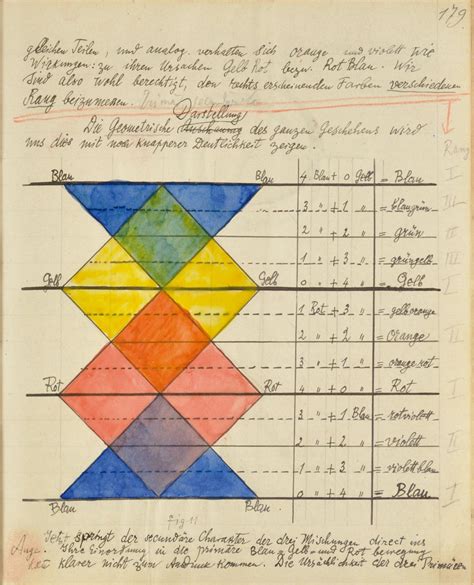 179
gleichen Teilen, und analog verhalten sich orange und violett wie
Wirkungen: zu ihren Ursachen Gelb Rot bezw. Rot Blau. Wir
sind also wohl berechtigt, den rechts erscheinenden Farben verschiedenen
Rang beizumessen.
Darstellung
Die Geometrische des ganzen Geschehens wird
uns dies mit noch knapperer Deutlichkeit zeigen.
Rang
Blau Blau 4 Blau + 0 Gelb = Blau I
3 " + 1 " = blaugrün III
2 " + 2 " = Grün II
1 " + 3 " = grüngelb III
Gelb Gelb 0 " + 4 " = Gelb I
1 Rot + 3 " = gelborange
2 " + 2 " = orange II
3 " + 1 " = orangerot
Rot Rot 4 " + 0 " = Rot I
3 " + 1 Blau = rotviolett
2 " + 2 " = violett II
1 " + 3 " = violettblau
Blau Blau 0 " + 4 " = Blau I
Fig. 11
Jetzt springt der secundäre Charakter der drei Mischungen direct ins
Auge. Ihre Einordnung in die primäre Blau Gelb und Rot bewegung
klarer nicht zum Ausdruck kommen. Die Ursächlichkeit der drei Primären